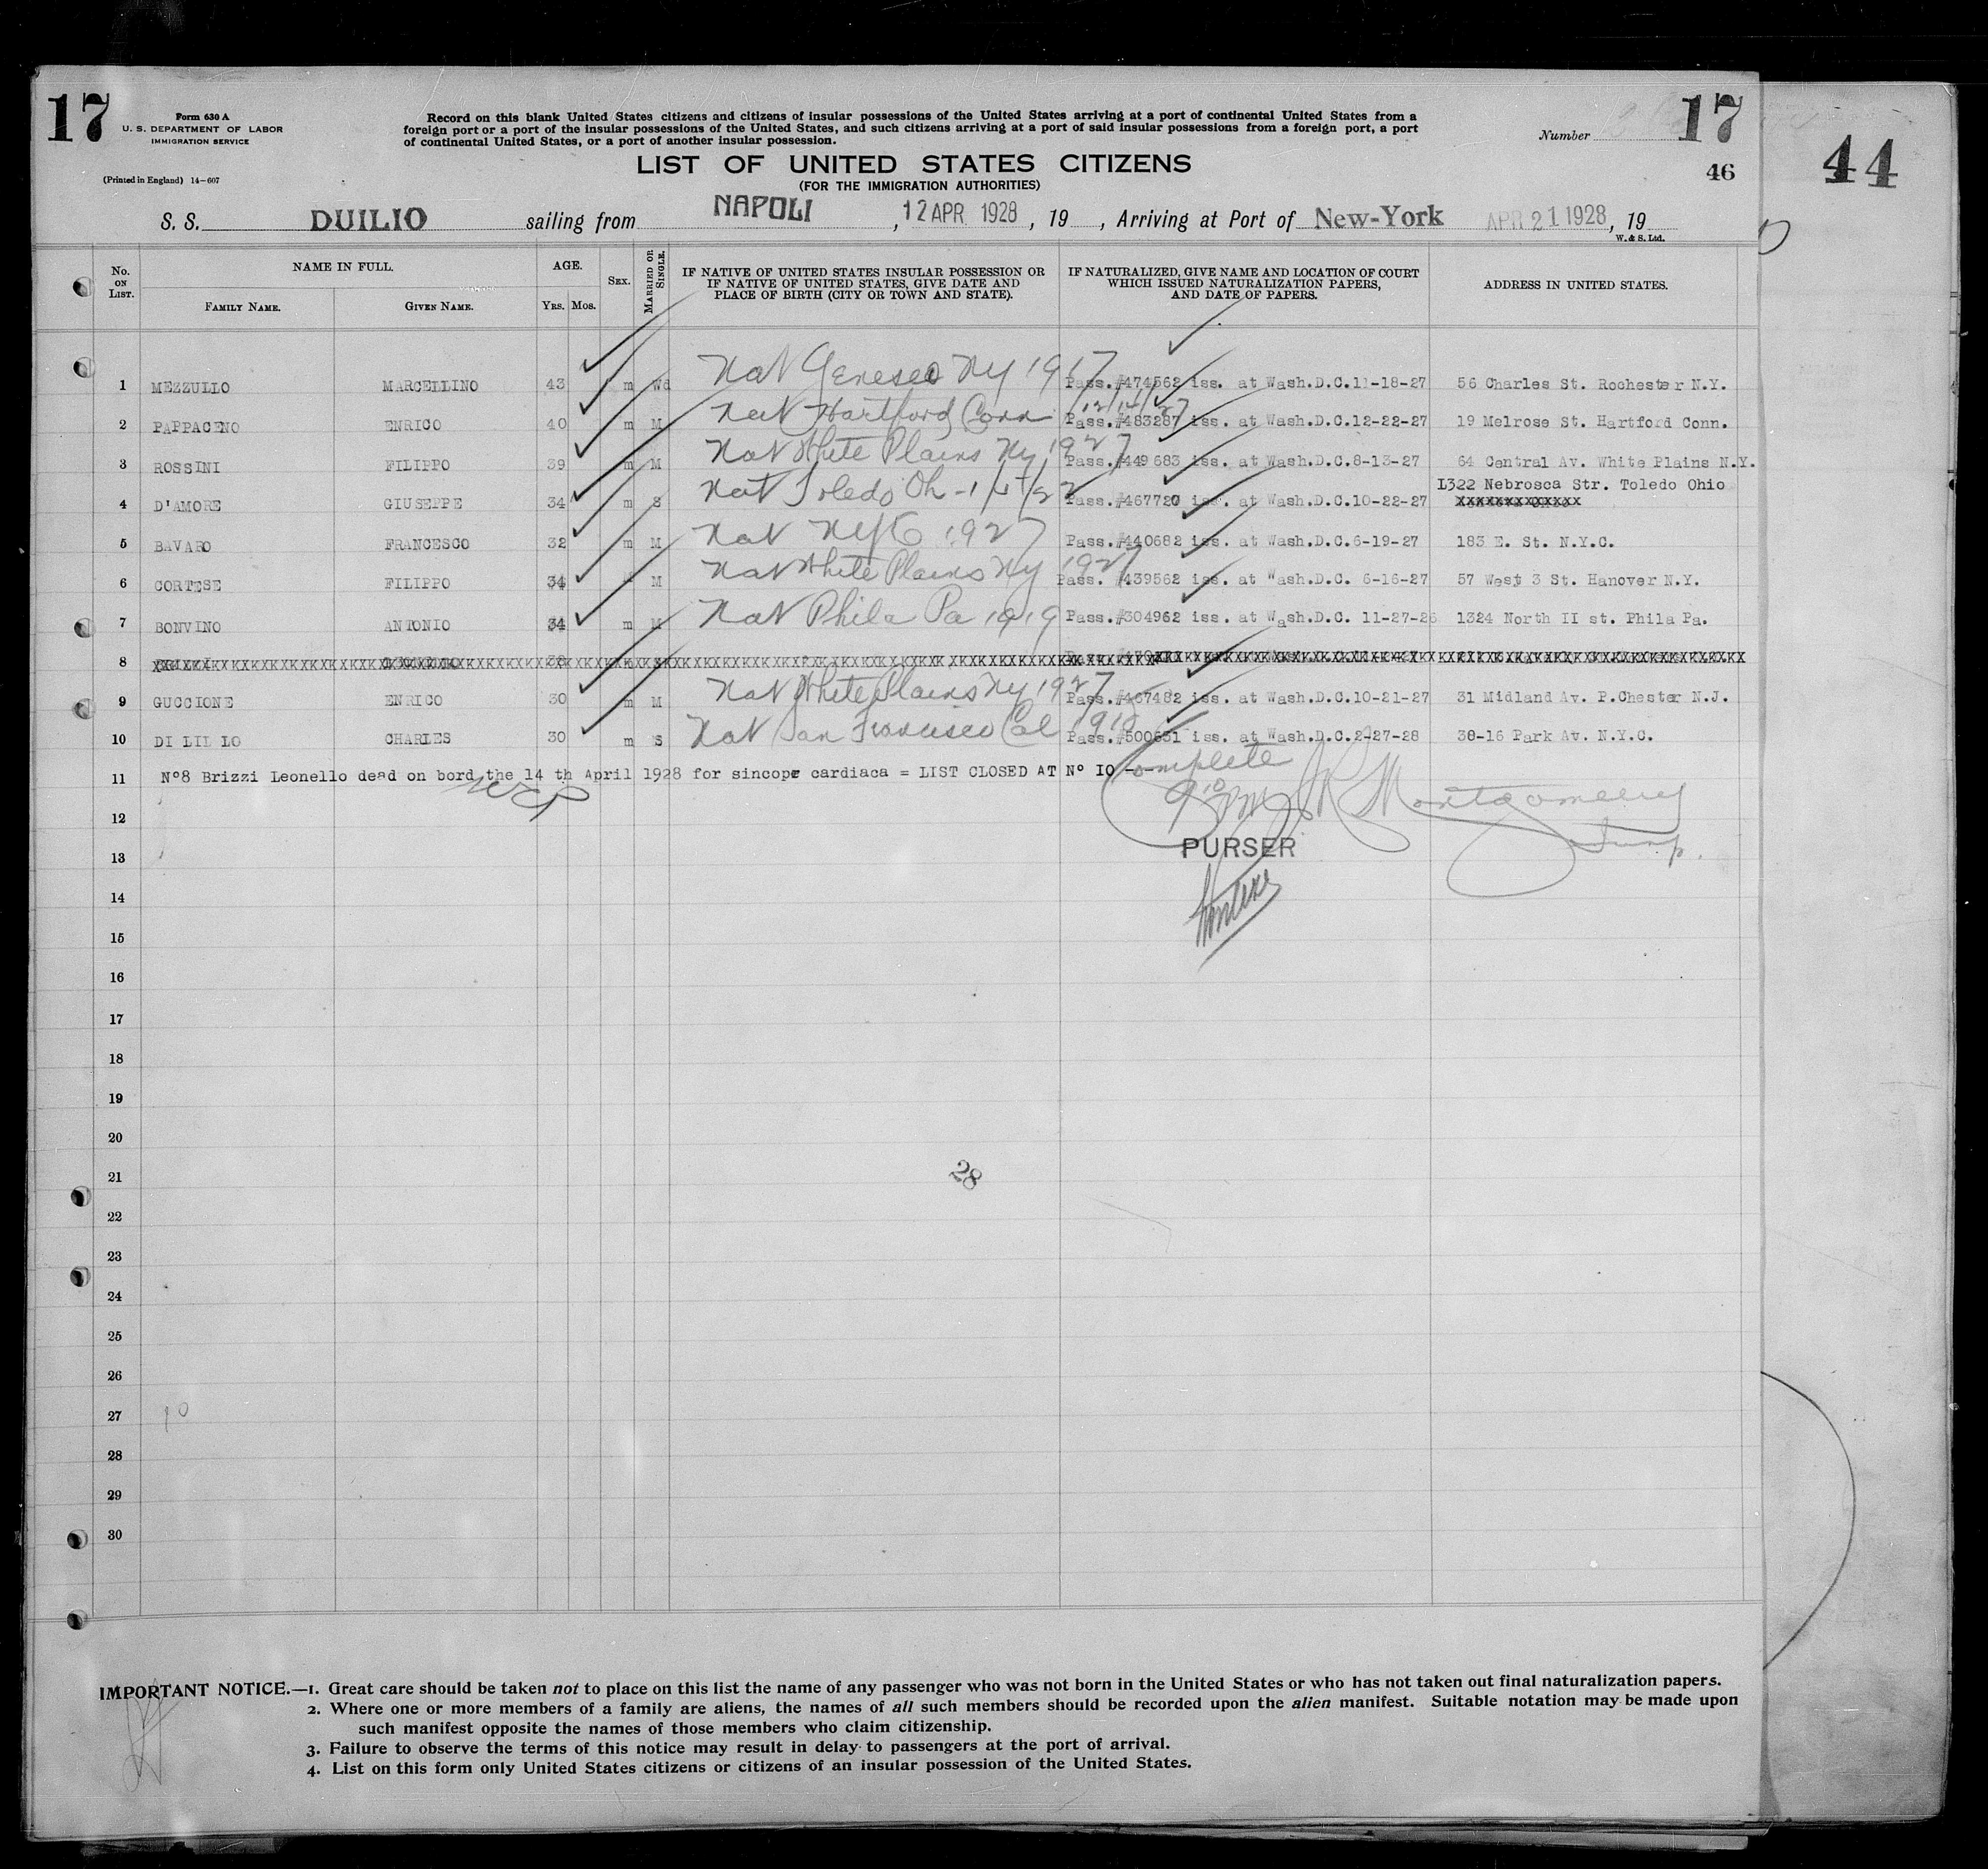 17
Form 630 A
U. S. DEPARTMENT OF LABOR
IMMIGRATION SERVICE
(Printed in England) 14-607
Record on this blank United States citizens and citizens of insular possessions of the United States arriving at a port of continental United States from a
foreign port or a port of the insular possessions of the United States, and such citizens arriving at a port of said insular possessions from a foreign port, a port
of continental United States, or a port of another insular possession.
LIST OF UNITED STATES CITIZENS
(FOR THE IMMIGRATION AUTHORITIES)
Number 17
46
44
S. S. DUILIO sailing from NAPOLI, 12 APR 1928, 19 , Arriving at Port of New-York APR 21 1928, 19
W. & S. Ltd.
No. ON LIST. NAME IN FULL. AGE. SEX. MARRIED OR SINGLE. IF NATIVE OF UNITED STATES INSULAR POSSESSION OR IF NATIVE OF UNITED STATES, GIVE DATE AND PLACE OF BIRTH (CITY OR TOWN AND STATE). IF NATURALIZED, GIVE NAME AND LOCATION OF COURT WHICH ISSUED NATURALIZATION PAPERS, AND DATE OF PAPERS. ADDRESS IN UNITED STATES.
FAMILY NAME. GIVEN NAME. YRS. MOS.
1 MEZZULLO MARCELLINO 43 m Wd Nat Geneseo NY 1917 Pass.#474562 iss. at Wash.D.C.11-18-27 56 Charles St. Rochester N.Y.
2 PAPPACENO ENRICO 40 m M Nat Hartford Conn 12/14/27 Pass.#483287 iss. at Wash.D.C.12-22-27 19 Melrose St. Hartford Conn.
3 ROSSINI FILIPPO 39 m M Nat White Plains NY 1927 Pass.#449683 iss. at Wash.D.C.8-13-27 64 Central Av. White Plains N.Y.
L322 Nebrosca Str. Toledo Ohio
4 D'AMORE GIUSEPPE 34 m S Nat Toledo Oh - Pass.#467720 iss. at Wash.D.C.10-22-27
5 BAVARO FRANCESCO 32 m M Nat NYC 1927 Pass.#440682 iss. at Wash.D.C.6-19-27 183 E. St. N.Y.C.
6 CORTESE FILIPPO 34 M Nat White Plains NY 1927 Pass. #439562 iss. at Wash.D.C. 6-16-27 57 West 3 St. Hanover N.Y.
7 BONVINO ANTONIO 34 m M Nat Phila Pa 1919 Pass.#304962 iss. at Wash.D.C. 11-27-26 1324 North II st. Phila Pa.
8
9 GUCCIONE ENRICO 30 m M Nat White Plains NY 1927 Pass.#467482 iss. at Wash.D.C.10-21-27 31 Midland Av. P.Chester N.J.
10 DI LIL LO CHARLES 30 m S Nat San Francisco Cal Pass.#500651 iss. at Wash.D.C.2-27-28 38-16 Park Av. N.Y.C.
11 N°8 Brizzi Leonello dead on bord the 14 th April 1928 for sincope cardiaca = LIST CLOSED AT N° IO -- Complete
12 Montgomery
13 PURSER Insp.
14
15
16
17
18
19
20
21 28
22
23
24
25
26
27 10
28
29
30
IMPORTANT NOTICE.—1. Great care should be taken not to place on this list the name of any passenger who was not born in the United States or who has not taken out final naturalization papers.
2. Where one or more members of a family are aliens, the names of all such members should be recorded upon the alien manifest. Suitable notation may be made upon
such manifest opposite the names of those members who claim citizenship.
3. Failure to observe the terms of this notice may result in delay to passengers at the port of arrival.
4. List on this form only United States citizens or citizens of an insular possession of the United States.